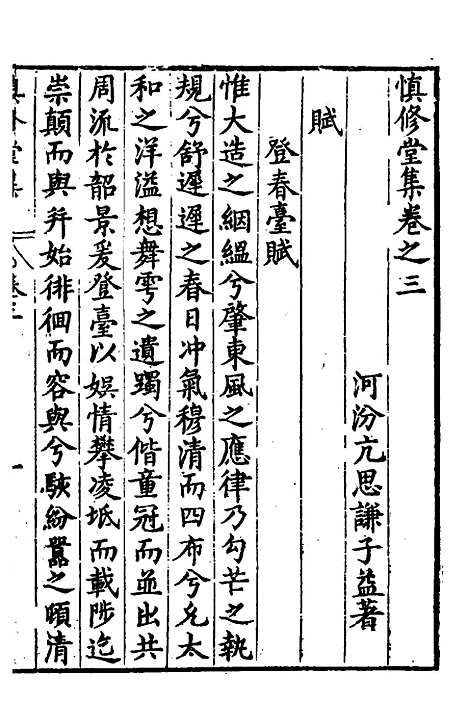 慎修堂集卷之三
河汾亢思謙子益著
賦
登春臺賦
惟大造之絪縕兮肇東風之應律乃勾芒之執
規兮舒遲遲之春日冲氣穆清而四布兮允太
和之洋溢想舞雩之遺躅兮偕童冠而並出共
周流於韶景爰登臺以娛情攀凌坻而載陟迄
崇顛而與幷始徘徊而容與兮駭紛囂之頤清